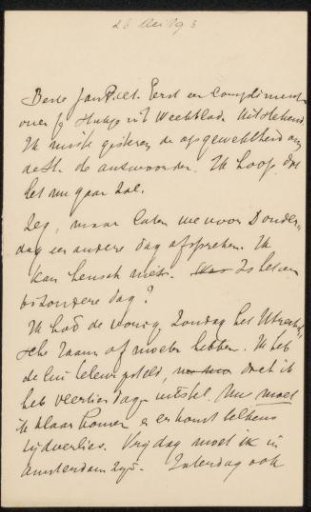 Beste Jan Piet. Eerst een compliment
over je Huygs i/h Weekblad. Uitstekend
Ik miste gisteren de opgewektheid om
de te antwoorden. Ik hoop dat
het nu gaan zal.
Zeg, maar laten we voor Donder-
dag een andere dag afspreken. Ik
kan heusch niet. Is het een
bizondere dag?
Ik had de vorige Zondag het Utrecht-
sche raam af moeten hebben. Ik heb
de lui teleurgesteld, doch ik
heb veertien dagen uitstel. Nu moet
ik klaar komen & er komt telkens
tijdverlies. Vrijdag moet ik in
Amsterdam zijn. Zaterdag ook